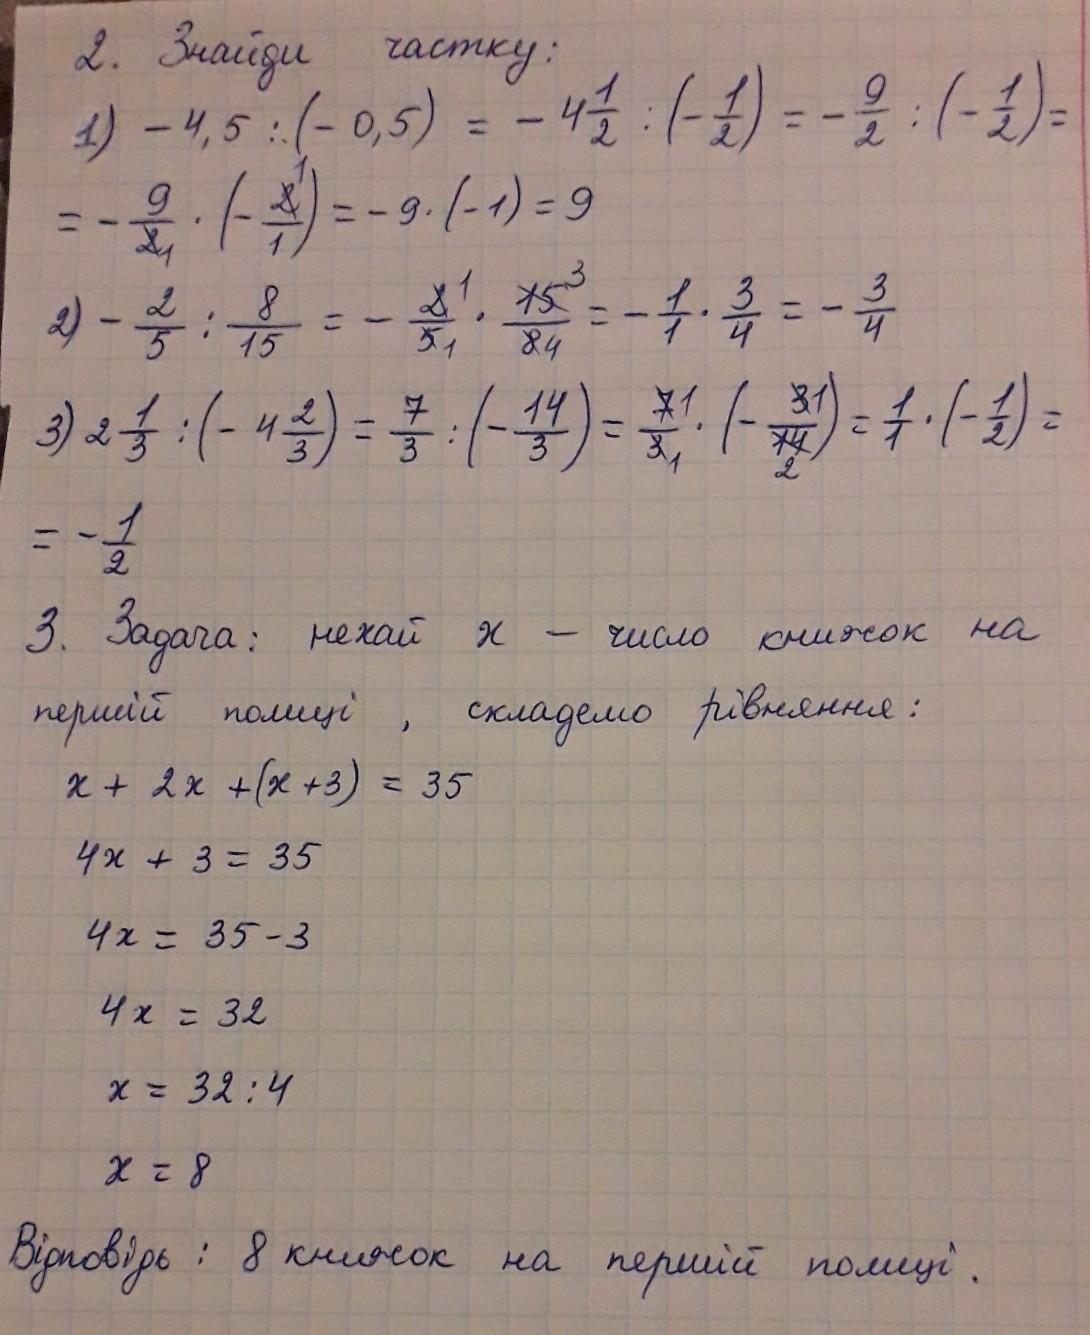 2. Знайди частку:
1) - 4,5 : (- 0,5) = - 4 1/2 : (- 1/2) = - 9/2 : (- 1/2) =
= - 9/2 1 · (- 2 1/1) = - 9 · (-1) = 9
2) - 2/5 : 8/15 = - 2 1/5 1 · 15 3/8 4 = - 1/1 · 3/4 = - 3/4
3) 2 1/3 : (- 4 2/3) = 7/3 : (- 14/3) = 7 1/3 1 · (- 3 1/14 2) = 1/1 · (- 1/2) =
= - 1/2
3. Задача: нехай x – число книжок на
першій полиці, складемо рівняння:
x + 2x + (x + 3) = 35
4x + 3 = 35
4x = 35 - 3
4x = 32
x = 32 : 4
x = 8
Відповідь : 8 книжок на першій полиці.